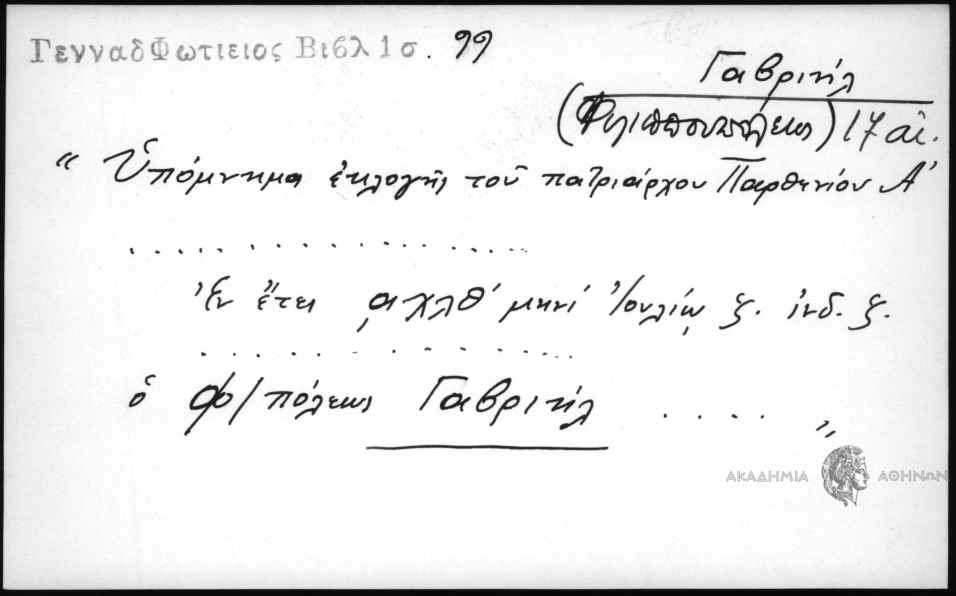 ΓενναδΦωτιειος Βιβλ 1σ. 99
Γαβριήλ
(Φιλιππουπόλεως) 17 αἰ.
“ Ὑπόμνημα ἐκλογῆς τοῦ πατριάρχου Παρθενίου Α'
. . . . . . . . . . . . . . . . . . .
Ἐν ἔτει ͵αχλθ' μηνὶ Ἰουλίῳ ξ. ἰνδ. ξ.
. . . . . . . . . . . . . . .
ὁ Φ/πόλεως Γαβριήλ . . . . . „
ΑΚΑΔΗΜΙΑ ΑΘΗΝΩΝ